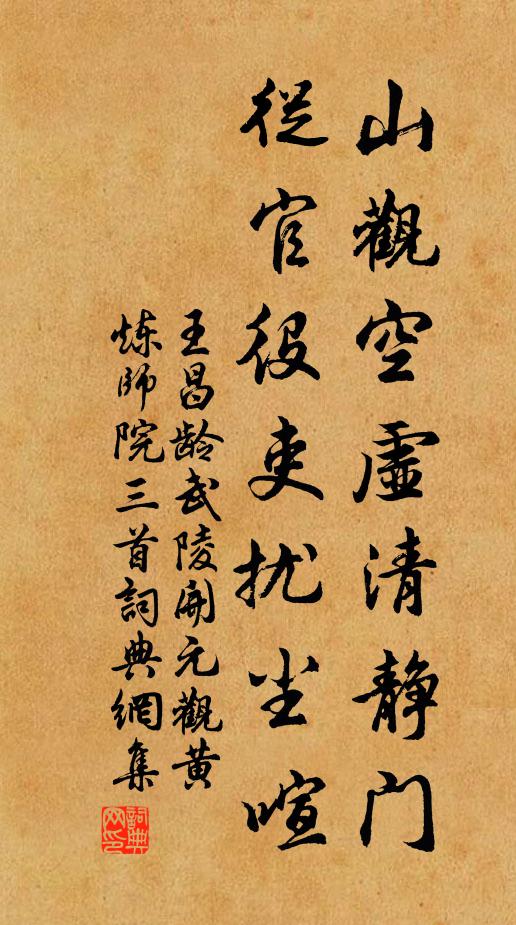 山觀空虛清静門
從官役吏扰尘喧
王昌龄武陵開元觀黄
炼師院三首詞典網集
詞典
网印